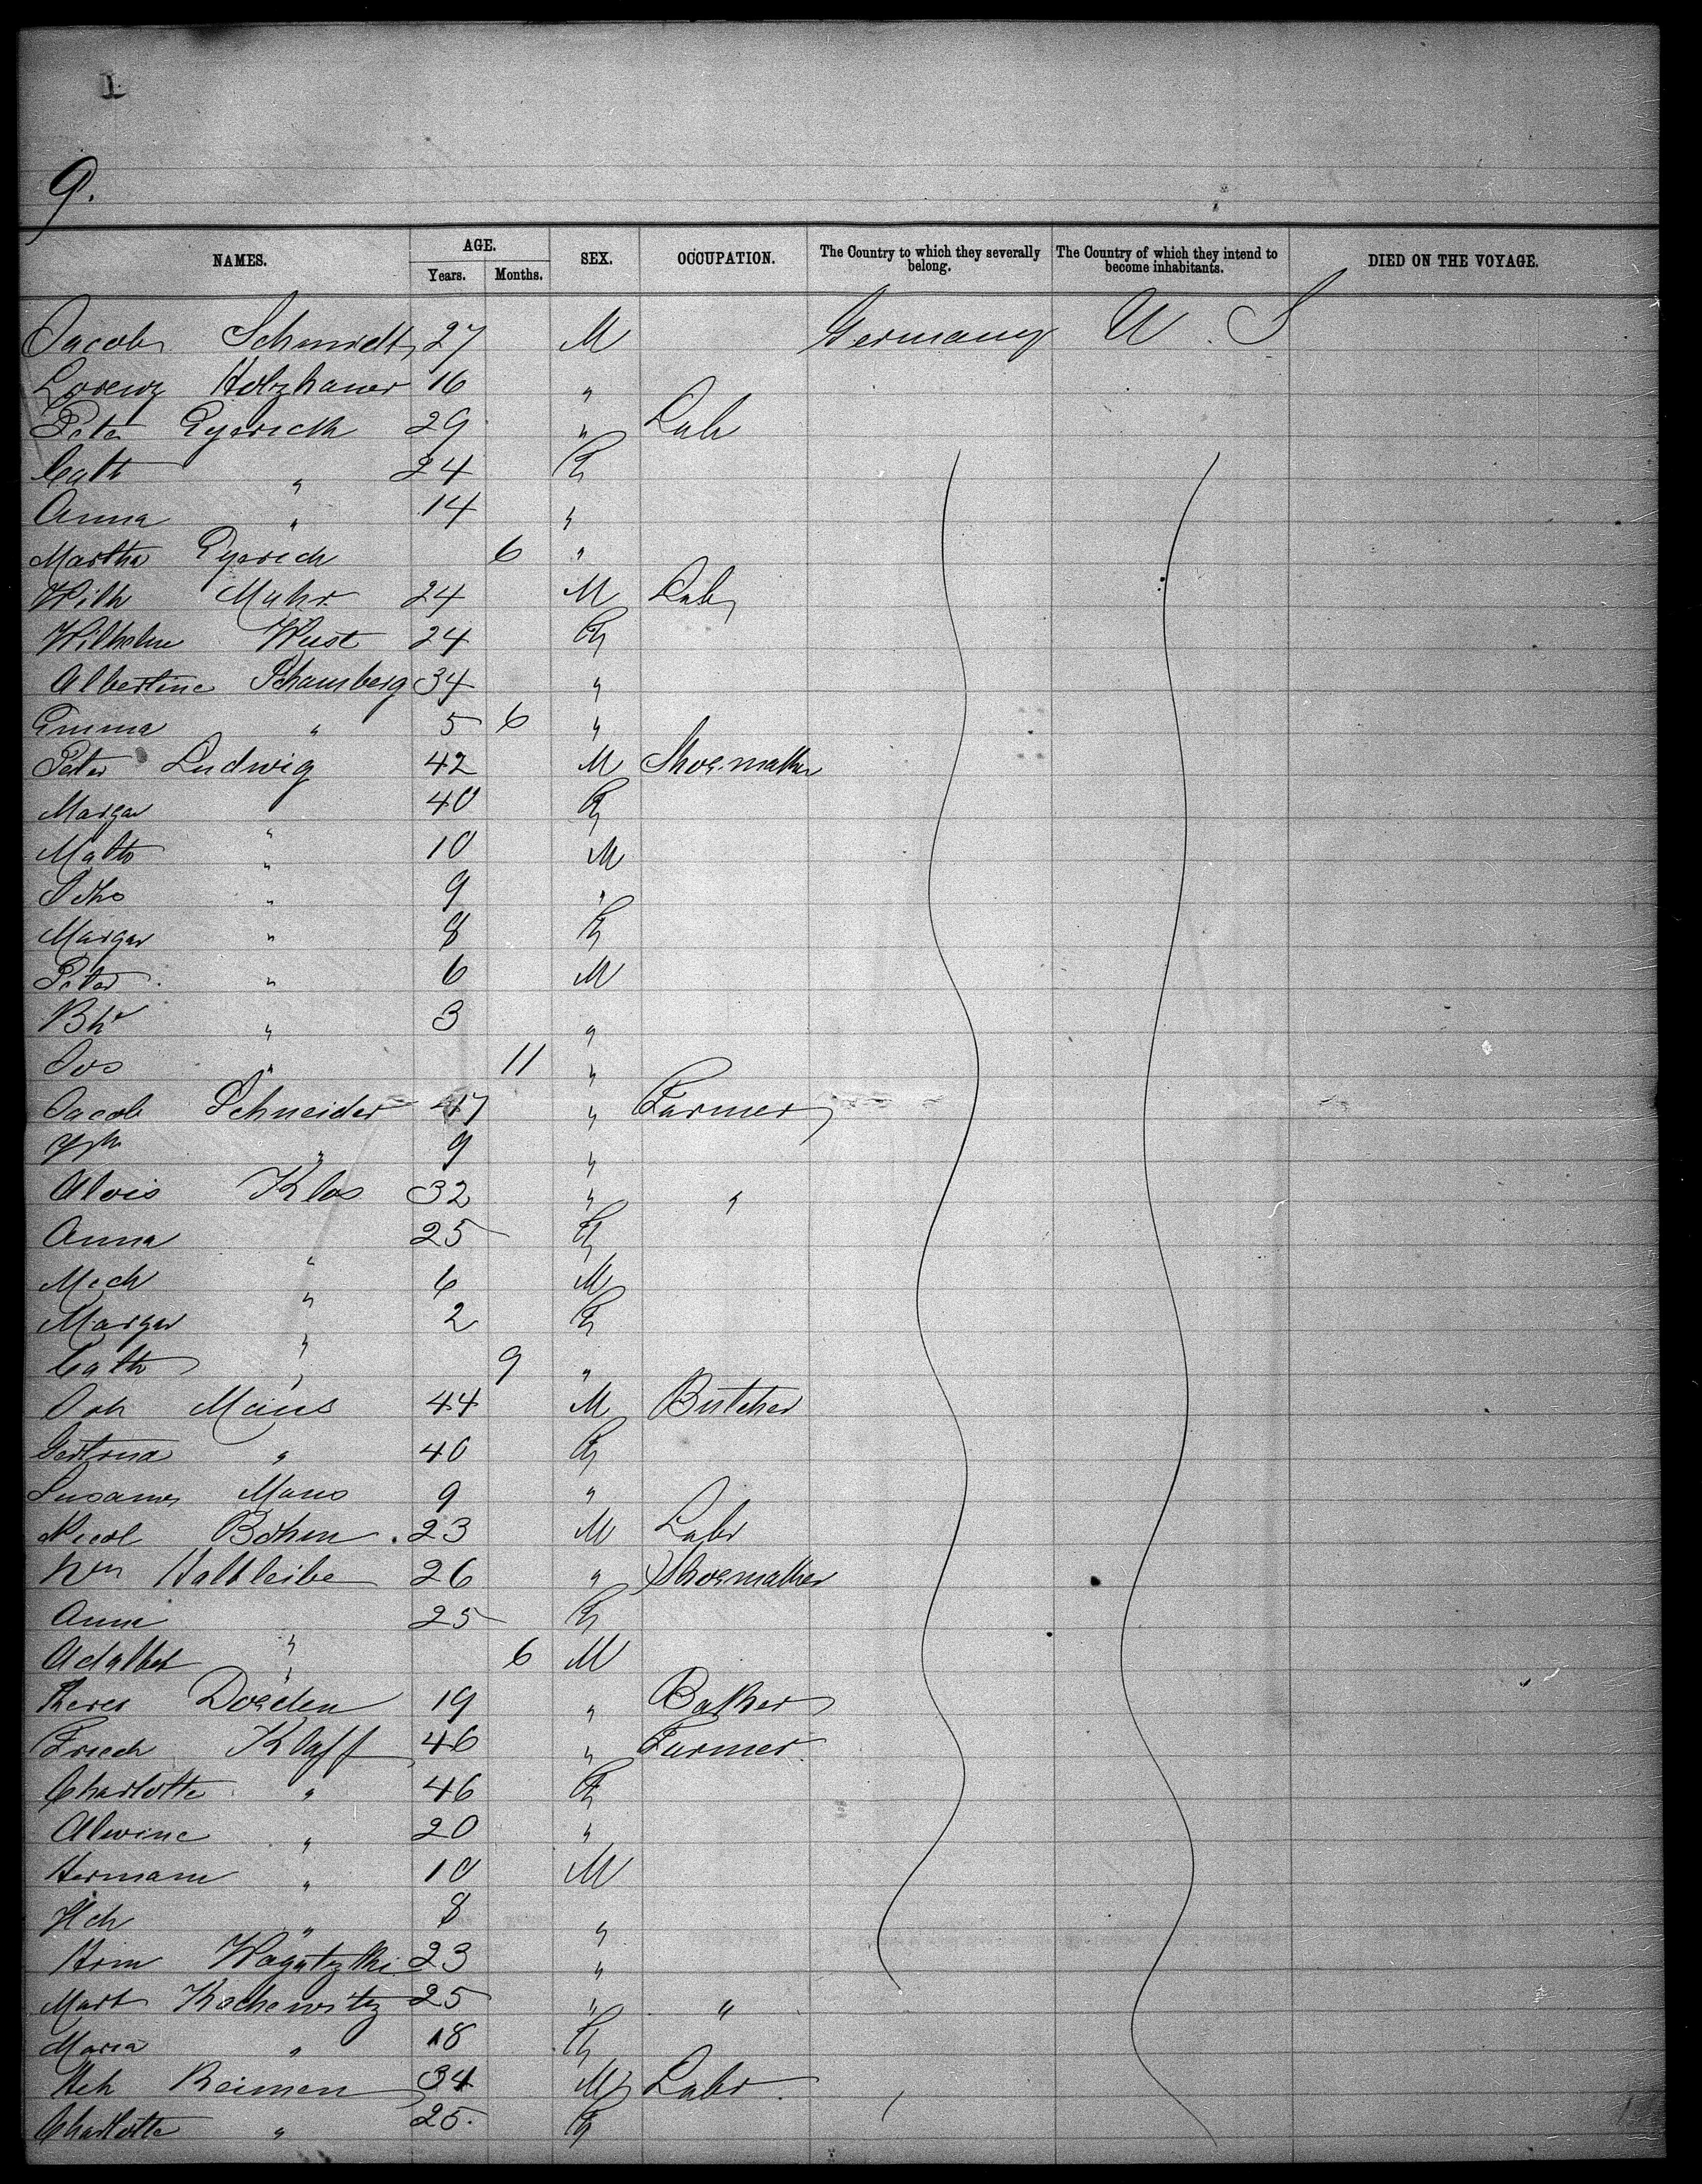 9.
NAMES. AGE. SEX. OCCUPATION. The Country to which they severally belong. The Country of which they intend to become inhabitants. DIED ON THE VOYAGE.
Years. Months.
Jacob Schmidt 27 M Germany U. S
Lorenz Holzhauer 16 "
Peter Eyerich 29 " Labr
Cath " 24 F
Anna " 14 "
Martha Eyerich 6 "
Wilh Muhr 24 M Labr
Wilhelm Wust 24 F
Albertine Schamberg 34 "
Emma " 5 6 "
Peter Ludwig 42 M Shoemaker
Margar " 40 F
Math " 10 M
" 9 "
Margar " 8 F
Peter " 6 M
" 3 "
Jos " 11 "
Jacob Schneider 47 " Farmer
" 9 "
Alois Klos 32 " "
Anna " 25 F
Mich " 6 M
Margar " 2 F
Cath " 9 "
Joh Maus 44 M Butcher
Gertrud " 40 F
Susanna Maus 9 "
Nicol Bohm 23 M Labr
Wm Haltleibe 26 " Shoemaker
Anna " 25 F
Adalbert " 6 M
Dorden 19 " Baker
Friedr Klaff 46 " Farmer
Charlotte " 46 F
Alwine " 20 "
Hermann " 10 M
Hch " 8 "
Herm Wagatzki 23 "
Mart Kochewitz 25 " "
Maria " 18 F
Hch Reimen 34 M Labr
Charlotte " 25 F